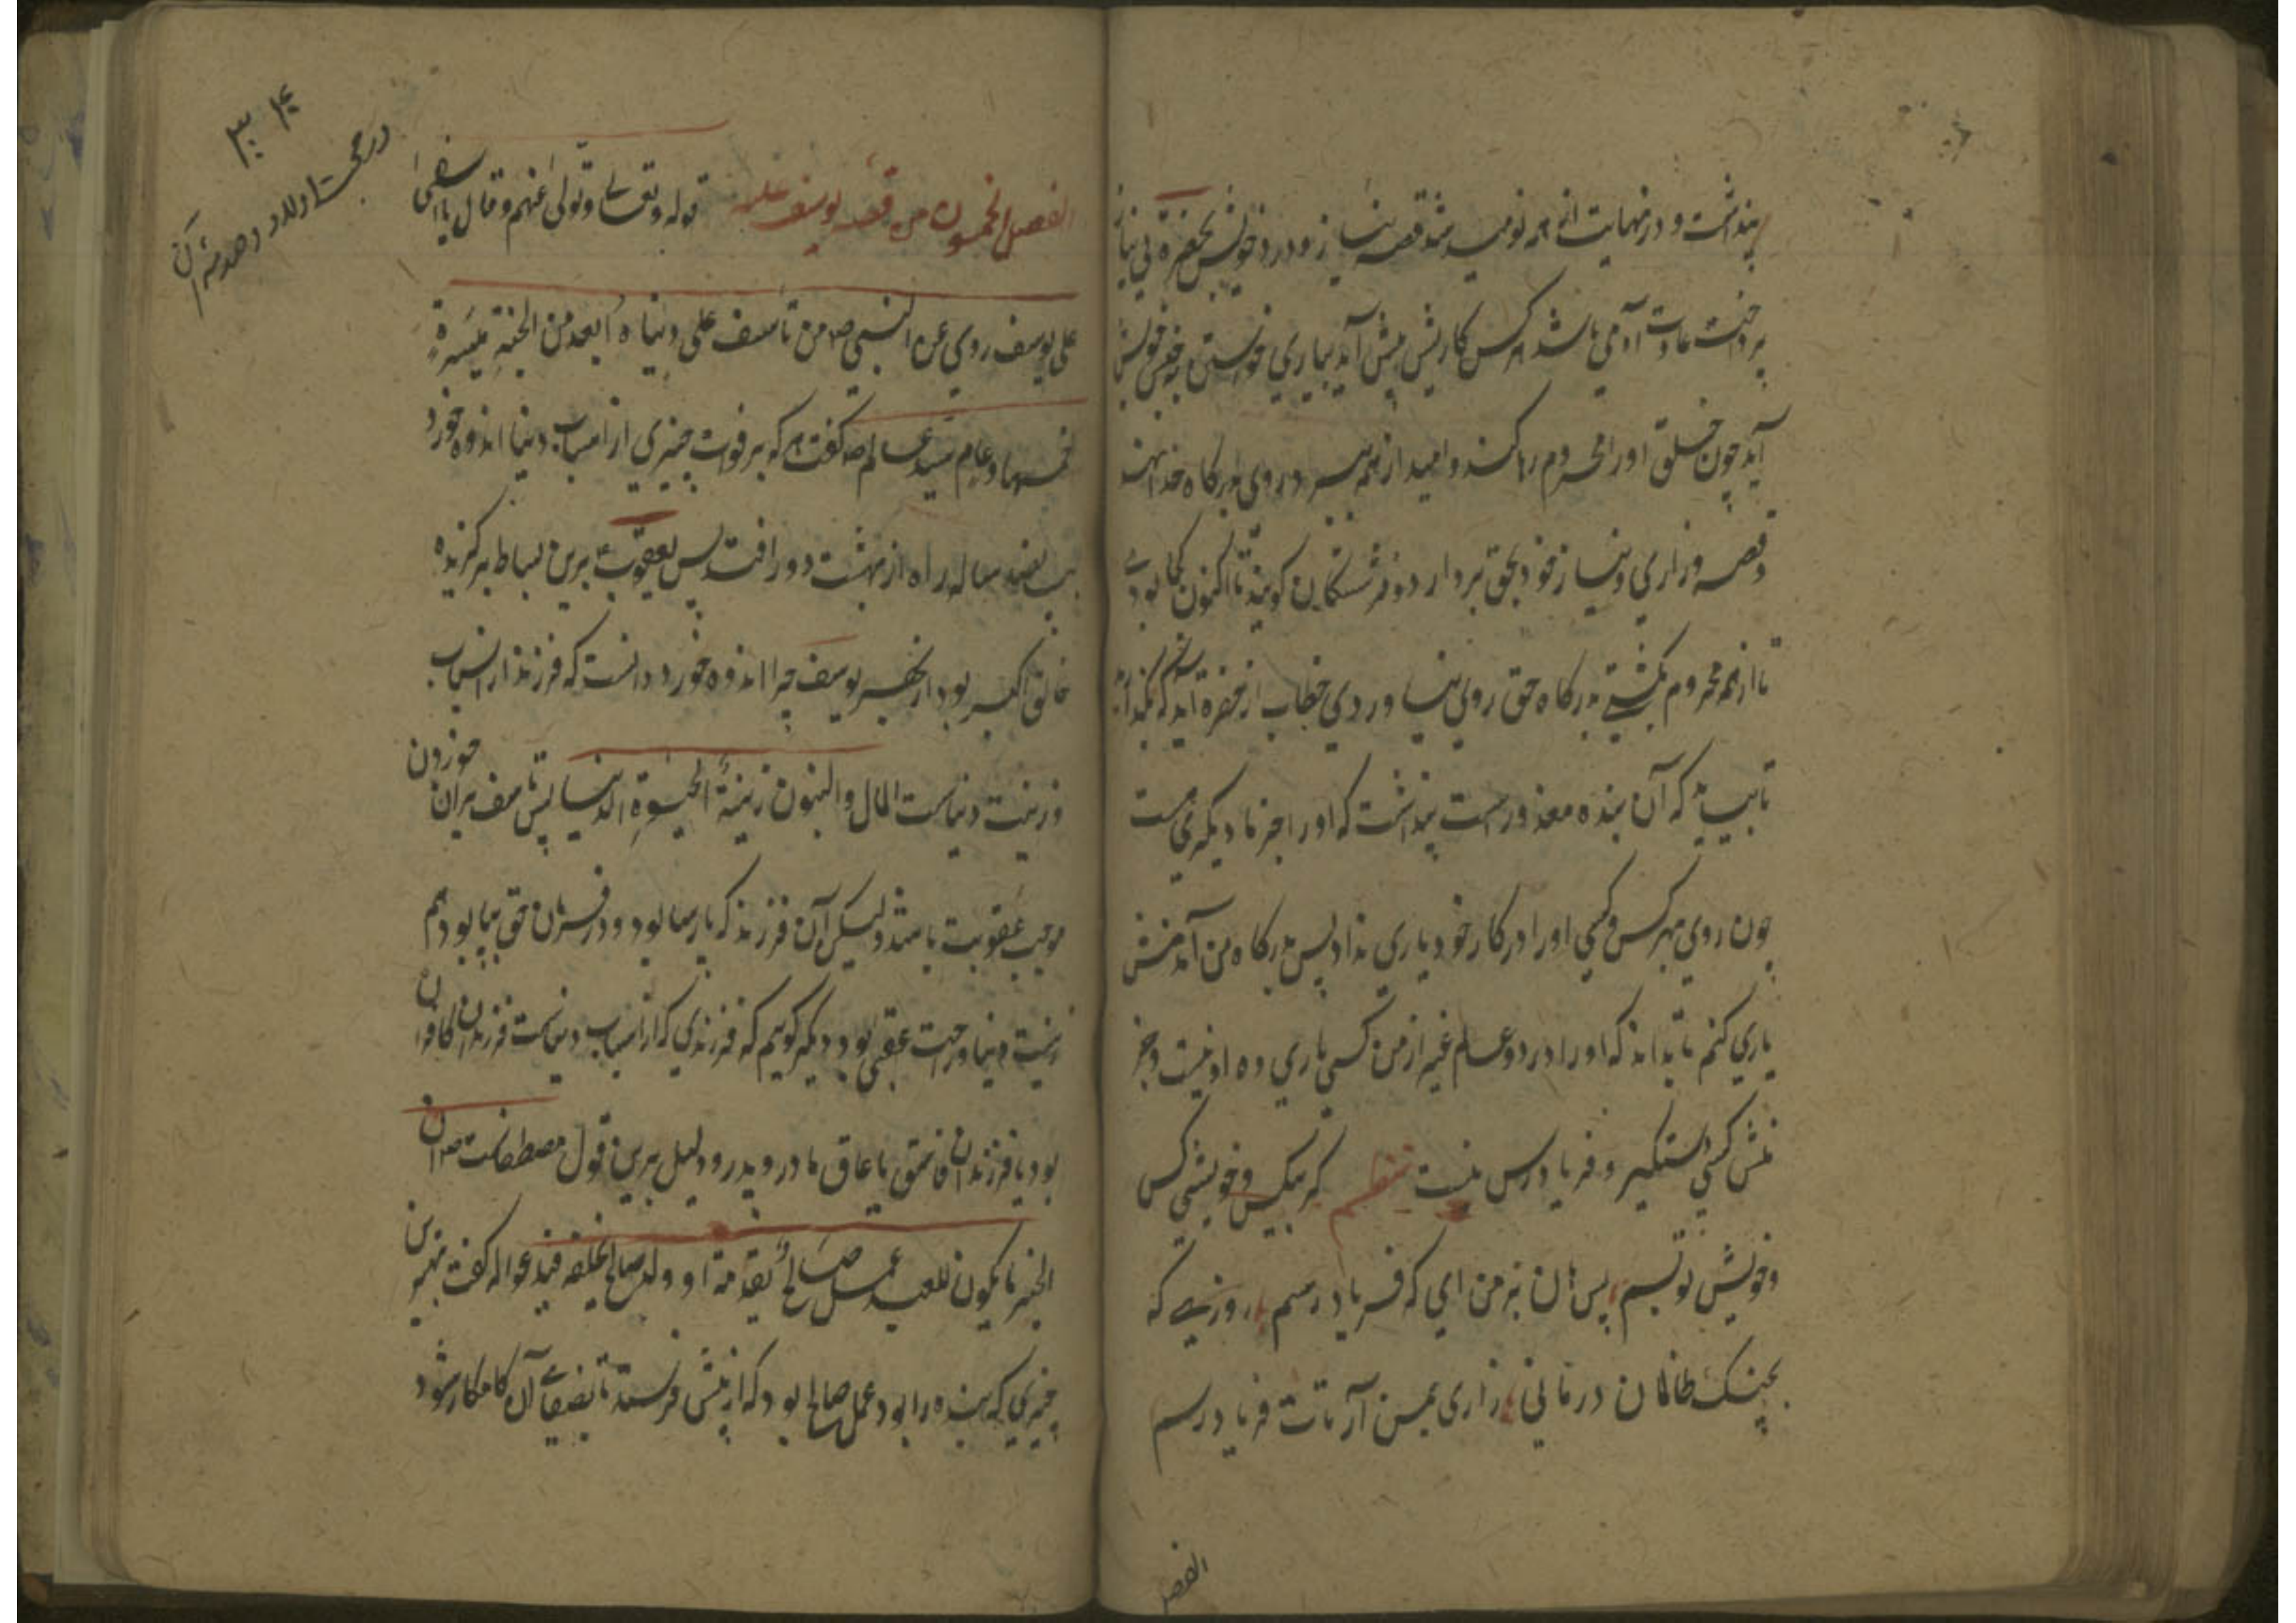 پنداشت و در نهایت از همه نومید شد قصه نیاز و درد خویش بحضرة بی نیاز
پرداخت عادت آدمی باشد هر کس کاریش پیش آید بیاری خواستن بدر خویش
آید چون خلق او را محروم رها کنند و امید از همه ببرد روی بدرگاه خدا نهد
و قصه و زاری و نیاز خود بحق بردارد و فرشتگان گویند تا اکنون کجا بودے
تا از همه محروم نگشتے بدرگاه حق روی نیاوردی خطاب از حضرة آید که بگذارید
تا بیاید که آن بنده معذورست پنداشت که او را جز ما دیگری هست
چون روی بهر کس و کسی او را در کار خود یاری نداد پس بدرگاه من آمد منش
یاری کنم تا بداند که او را در دو عالم غیر از من کسی یاری ده او نیست و جز
منش کسی دستگیر و فریادرس نیست نظم گر بیکس و خویشی کس
و خویش تو بسم پس نان بر من ای که فریاد رسم روزیے که
بچنک ظالمان درمانی زاری بمن آر تات فریاد رسم
الفصل
۳۰۴
در محبت اولاد و هدیه آن
الفصل الخمسون من قصه یوسف علیه قوله تعالے وتولی عنهم وقال یا اسفی
علی یوسف روی عن النبی ص من تأسف علی دنیاه ابعد من الجنة مسیرة
خمسمایه عام سید عالم ص گفت هر که بر فوت چیزی از اسباب دنیا اندوه خورد
بپانصد ساله راه از بهشت دور افتد پس یعقوب برین بساط برگزیده
خالق اکبر بود از بهر یوسف چرا اندوه خورد دانست که فرزند از اسباب
و زینت دنیاست المال والبنون زینة الحیوة الدنیا پس تأسف بر آن خوردن
موجب عقوبت باشد ولیکن آن فرزند که پارسا بود و در فرمان حق بپا بود هم
زینت دنیا و راحت عقبی بود دیگر گوییم که فرزندی که از اسباب دنیاست فرزندان کافران
بود یا فرزندان فاسق یا عاق مادر و پدر و دلیل برین قول مصطفاست ص ان
الخیر ما یکون للعبد عمل صالح یقدمه او ولد صالح یخلفه فیدعوا له گفت بهترین
چیزی که بنده را بود عمل صالح بود که از پیش فرستد تا بفضیآ آن کامکار شود